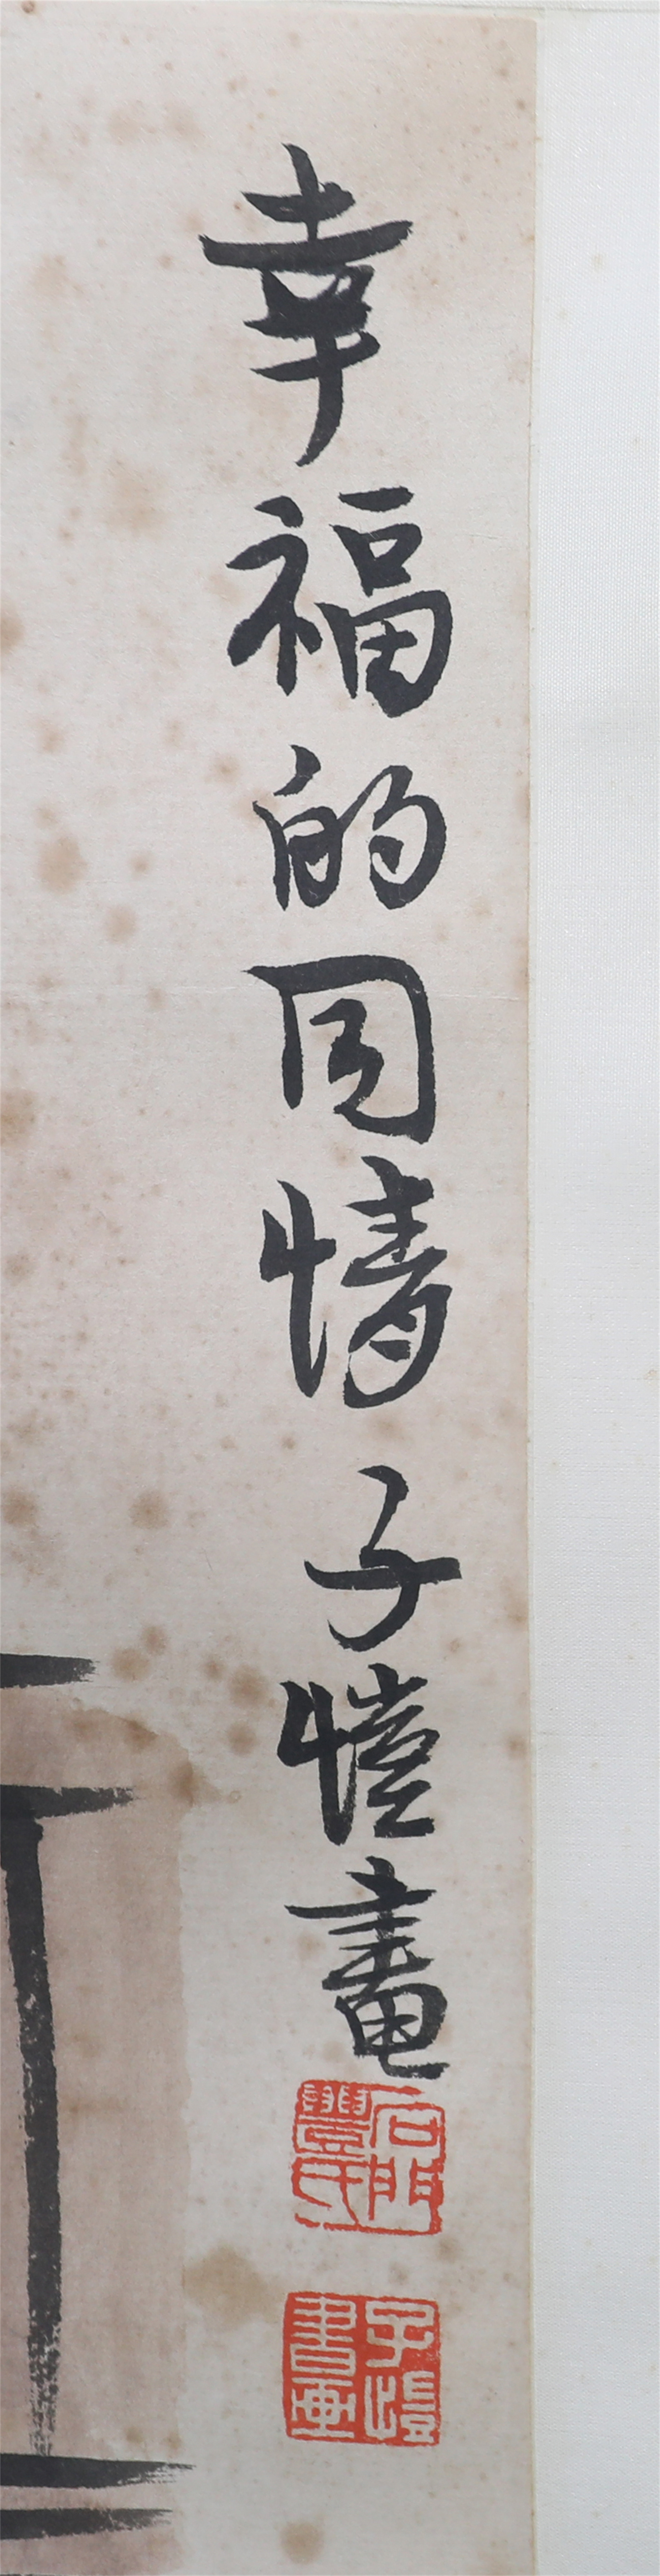 幸福的同情 子愷畫
石門豐氏
子愷書畫